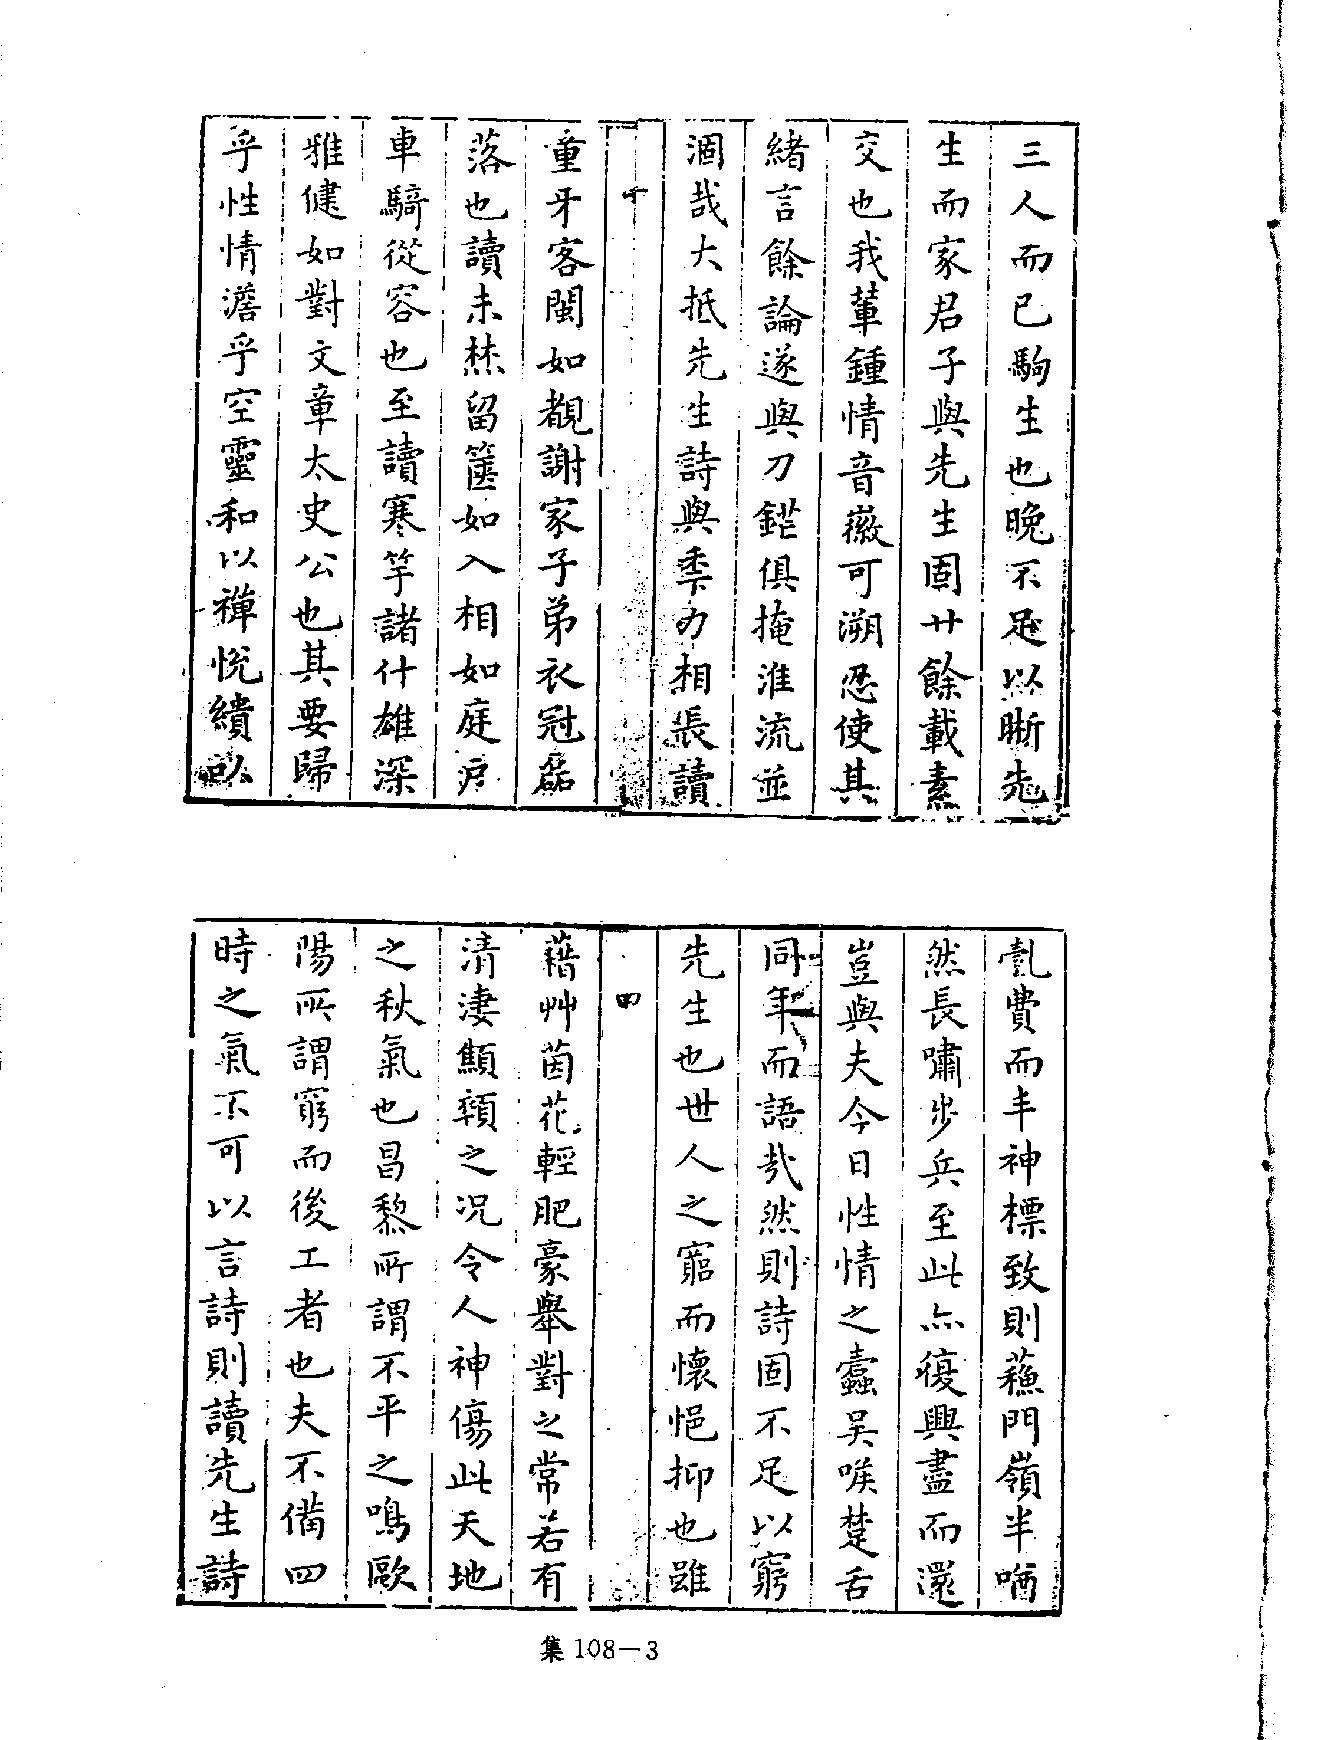 三人而已駒生也晚不足以晰先
生而家君子與先生固廿餘載素
交也我輩鍾情音徽可溯忍使其
緒言餘論遂與刀鋩俱掩淮流並
涸哉大抵先生詩與季力相長讀
童牙客閩如覩謝家子弟衣冠磊
落也讀未焚留篋如入相如庭戶
車騎從容也至讀寒竽諸什雄深
雅健如對文章太史公也其要歸
乎性情澹乎空靈和以禪悅繢以
亄費而丰神標致則蘓門嶺半
然長嘯步兵至此亦復興盡而還
豈與夫今日性情之蠹吴唉楚舌
同年而語哉然則詩固不足以窮
先生也世人之窮而懷悒抑也雖
四
藉艸茵花輕肥豪舉對之常若有
清淒顦顇之況令人神傷此天地
之秋氣也昌黎所謂不平之鳴歐
陽所謂窮而後工者也夫不備四
時之氣不可以言詩則讀先生詩
集108－3